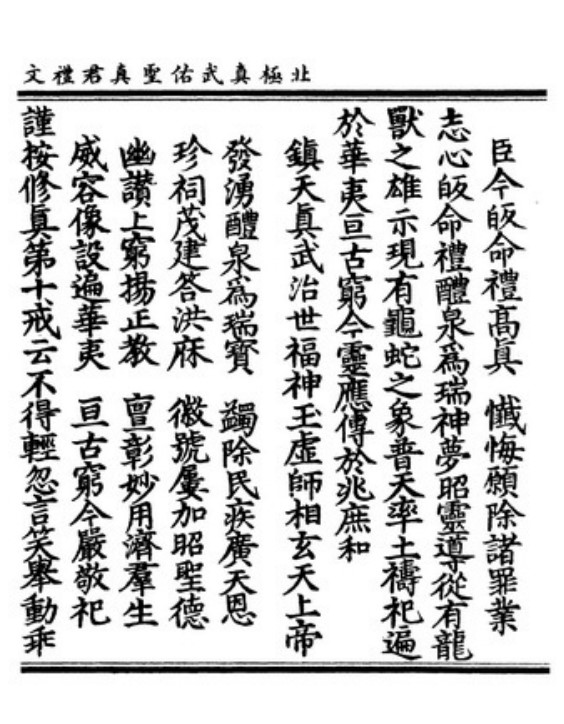 北極真武佑聖真君禮文
臣今皈命禮高眞　懺悔願除諸罪業
志心皈命禮醴泉爲瑞神夢昭靈導從有龍
獸之雄示現有龜蛇之象普天率土禱祀遍
於華夷亘古窮今靈應傳於兆庶和
鎮天眞武治世福神玉虛師相玄天上帝
發湧醴泉爲瑞寳　蠲除民疾廣天恩
珍祠茂建答洪庥　徽號屢加昭聖德
幽讚上窮揚正教　亶彰妙用濟羣生
威容像設遍華夷　亘古窮今嚴敬祀
謹按修眞第十戒云不得輕忽言笑舉動乖